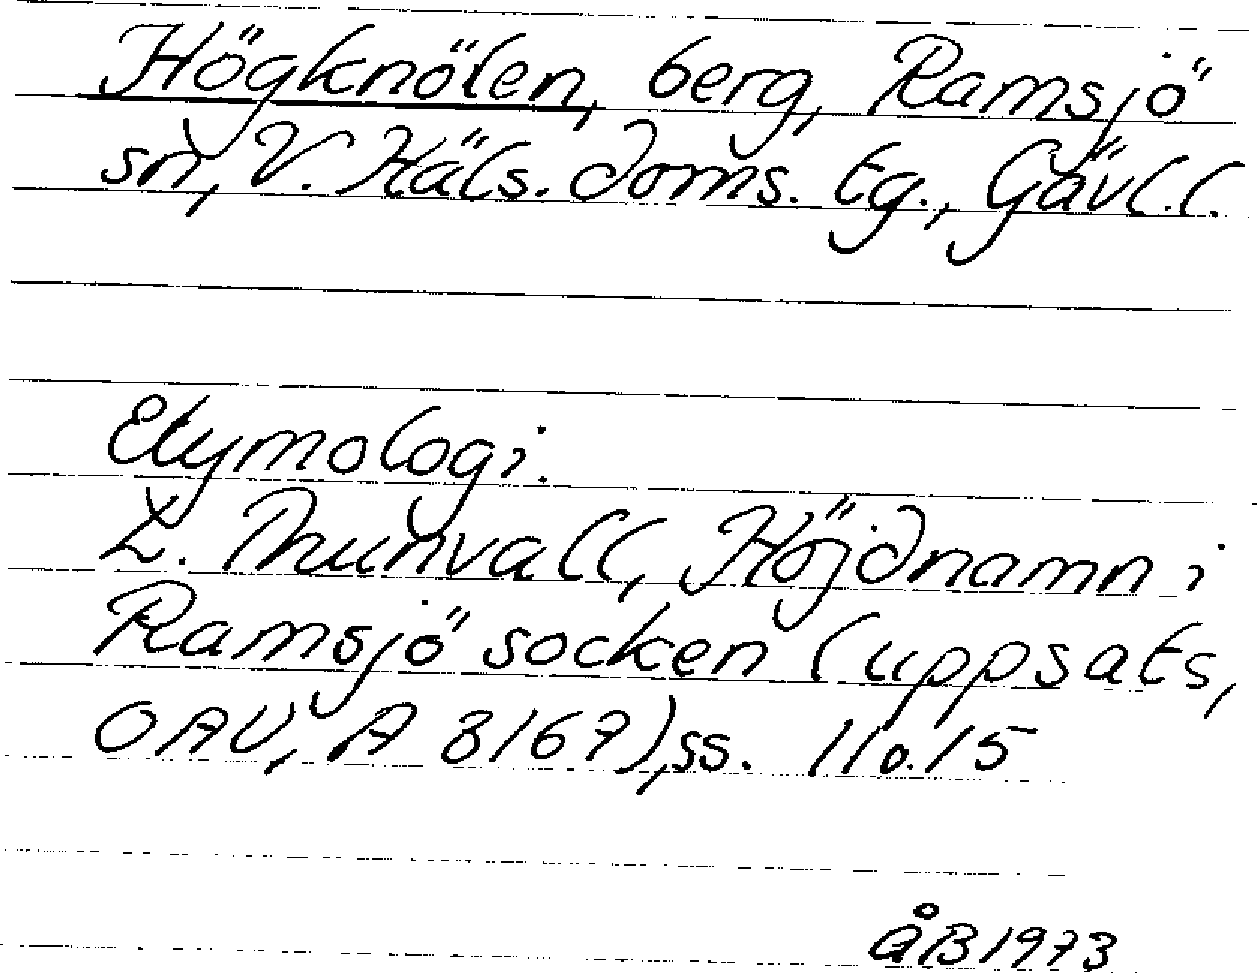 Högknölen, berg, Ramsjö
sn, V. Häls. doms. tg., Gävl.l.
Etymologi.
L. Thunvall, Höjdnamn i
Ramsjö socken (uppsats,
OAU, A 8167), ss. 11 o. 15
ÅB 1973